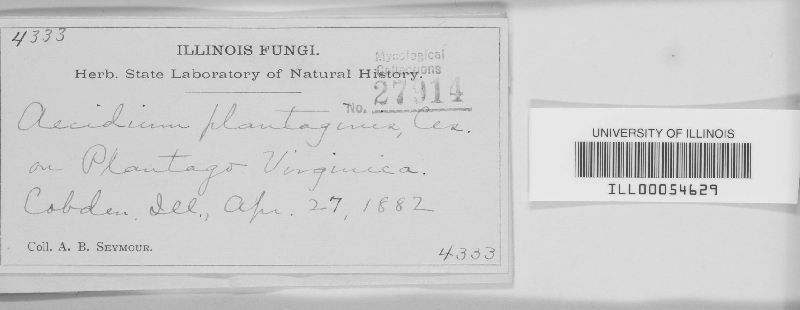 4333
ILLINOIS FUNGI.
Herb. State Laboratory of Natural History.
Mycological
Collections
No. 27914
Aecidium plantaginis, Ces.
on Plantago Virginica.
Cobden, Ill., Apr. 27, 1882
Coll. A. B. SEYMOUR.
4333
UNIVERSITY OF ILLINOIS
ILL00054629